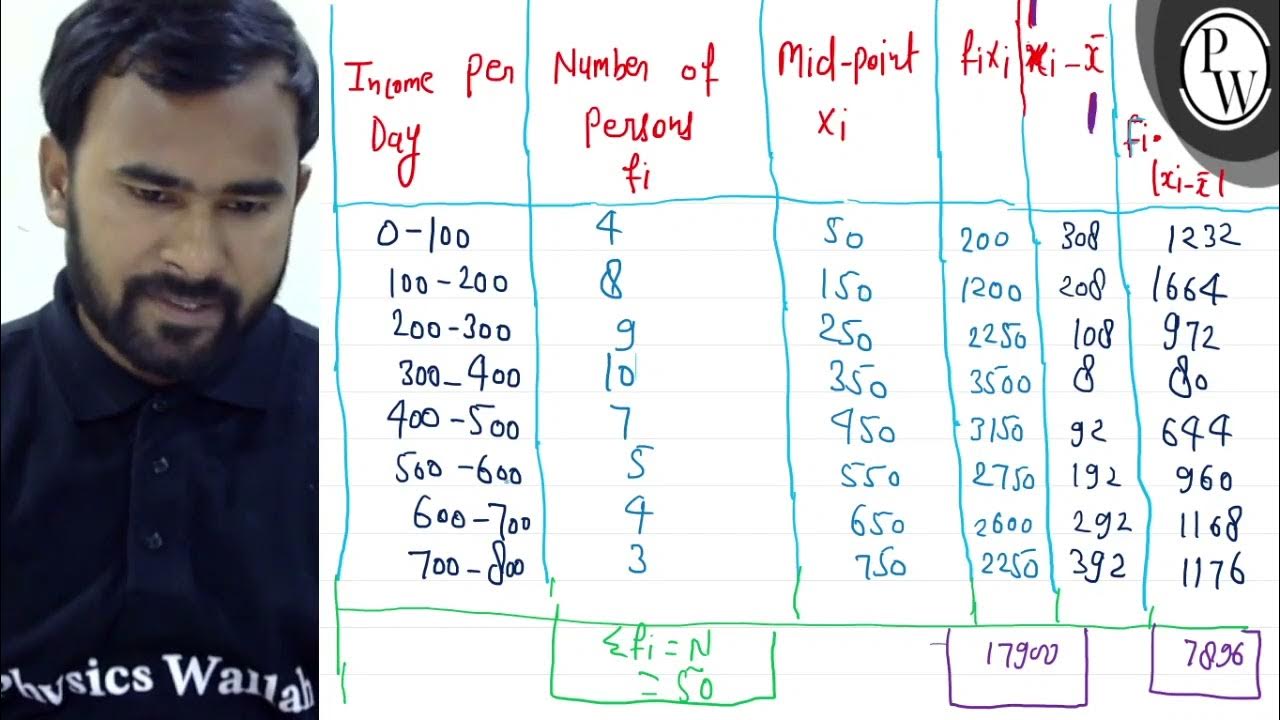 Income Per Day | Number of Persons fi | Mid-point xi | fixi | xi - x̄ | fi. |xi - x̄|
0-100 4 50 200 308 1232
100-200 8 150 1200 208 1664
200-300 9 250 2250 108 972
300-400 10 350 3500 8 80
400-500 7 450 3150 92 644
500-600 5 550 2750 192 960
600-700 4 650 2600 292 1168
700-800 3 750 2250 392 1176
Σfi = N
= 50
17900
7896
PW
Physics Wallah